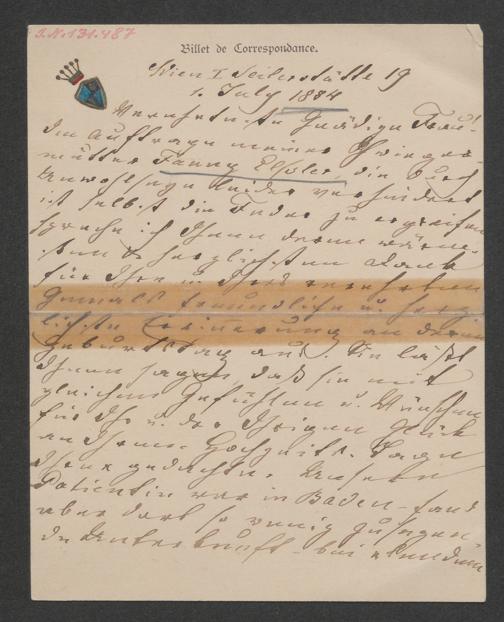 I.N. 131.487
Billet de Correspondance.
Wien I Seilerstätte 19
1. July 1884
Verehrteste Gnädige Frau!
Im Auftrage meiner Schwieger-
mutter Fanny Elßler, die durch
Unwohlsein leider verhindert
ist selbst die Feder zu ergreifen
spreche ich Ihnen deren wärm-
sten & herzlichsten Dank
für Ihre u. Ihres verehrten
Gemals freundliche u. herz-
lichste Erinnerung an deren
Geburtstag aus. Sie läßt
Ihnen sagen, daß sie mit
gleichen Gefühlen u. Wünschen
für Ihr u. der Ihrigen Glück
an Ihrem Hochzeits-Tage
Ihrer gedachte. Unsere
Patientin war in Baden - fand
aber dort so wenig zusagen-
de Unterkunft - bei